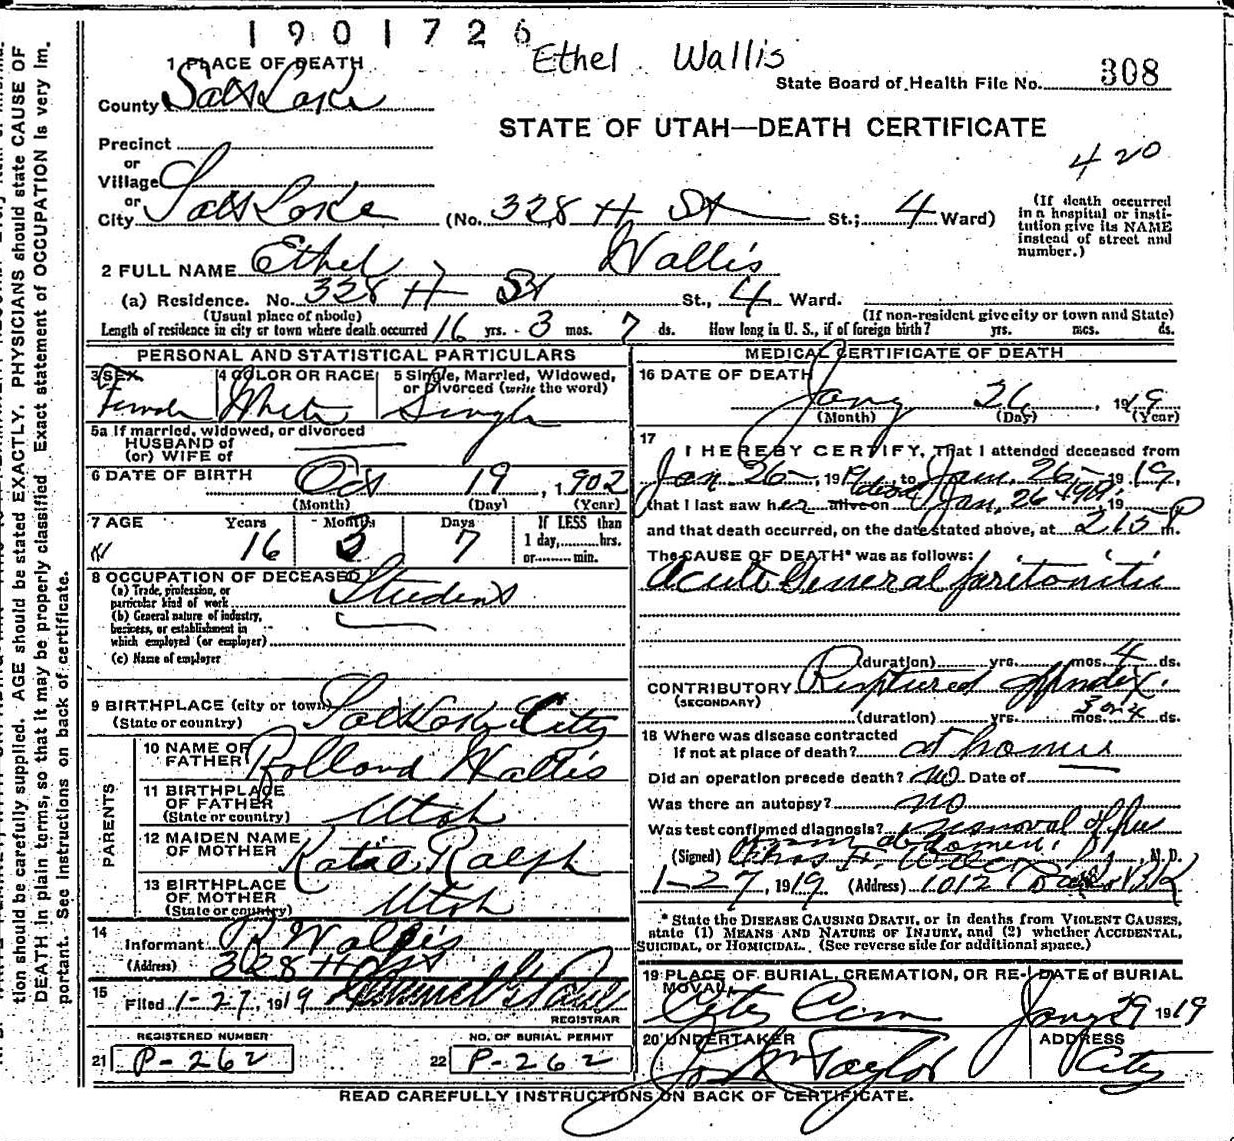 1901726
Ethel Wallis
1 PLACE OF DEATH
State Board of Health File No. 308
County Salt Lake
STATE OF UTAH—DEATH CERTIFICATE
Precinct
420
or
Village
or
City Salt Lake (No. 328 H St St.; 4 Ward)
(If death occurred in a hospital or institution give its NAME instead of street and number.)
2 FULL NAME Ethel Wallis
(a) Residence. No. 328 H St St., 4 Ward.
(Usual place of abode) (If non-resident give city or town and State)
Length of residence in city or town where death occurred 16 yrs. 3 mos. 7 ds. How long in U. S., if of foreign birth? yrs. mos. ds.
PERSONAL AND STATISTICAL PARTICULARS
3 SEX 4 COLOR OR RACE 5 Single, Married, Widowed,
or Divorced (write the word)
Female White Single
5a If married, widowed, or divorced
HUSBAND of
(or) WIFE of
6 DATE OF BIRTH Oct 19, 1902
(Month) (Day) (Year)
7 AGE Years Months Days If LESS than
16 3 7 1 day, hrs.
or min.
8 OCCUPATION OF DECEASED
(a) Trade, profession, or
particular kind of work Student
(b) General nature of industry,
business, or establishment in
which employed (or employer)
(c) Name of employer
9 BIRTHPLACE (city or town) Salt Lake City
(State or country)
PARENTS
10 NAME OF
FATHER Rolland Wallis
11 BIRTHPLACE
OF FATHER
(State or country) Utah
12 MAIDEN NAME
OF MOTHER Katie Ralph
13 BIRTHPLACE
OF MOTHER
(State or country) Utah
14
Informant R Wallis
(Address) 328 H St
15
Filed 1-27, 1919
REGISTRAR
REGISTERED NUMBER NO. OF BURIAL PERMIT
21 P-262 22 P-262
MEDICAL CERTIFICATE OF DEATH
16 DATE OF DEATH
Jany 26, 1919
(Month) (Day) (Year)
17
I HEREBY CERTIFY, That I attended deceased from
Jan 26- 1919, to Jan. 26- 1919,
that I last saw her alive on dead Jan. 26 1919, 19
and that death occurred, on the date stated above, at 215 P m.
The CAUSE OF DEATH* was as follows:
Acute General peritonitis
(duration) yrs. mos. 4 ds.
CONTRIBUTORY Ruptured appendix.
(SECONDARY)
(duration) yrs. mos. 3 or 4 ds.
18 Where was disease contracted
If not at place of death? at home
Did an operation precede death? no Date of
Was there an autopsy? no
Was test confirmed diagnosis? removal of pus
from abdomen.
(Signed) Chas F. , M. D.
1-27, 1919 (Address) 1012 Bldg
* State the DISEASE CAUSING DEATH, or in deaths from VIOLENT CAUSES,
state (1) MEANS AND NATURE OF INJURY, and (2) whether ACCIDENTAL,
SUICIDAL, or HOMICIDAL. (See reverse side for additional space.)
19 PLACE OF BURIAL, CREMATION, OR RE- DATE of BURIAL
MOVAL,
City Cem Jany 29 1919
20 UNDERTAKER ADDRESS
Jos Wm Taylor City
READ CAREFULLY INSTRUCTIONS ON BACK OF CERTIFICATE.
tion should be carefully supplied. AGE should be stated EXACTLY. PHYSICIANS should state CAUSE OF
DEATH in plain terms, so that it may be properly classified. Exact statement of OCCUPATION is very im-
portant. See instructions on back of certificate.